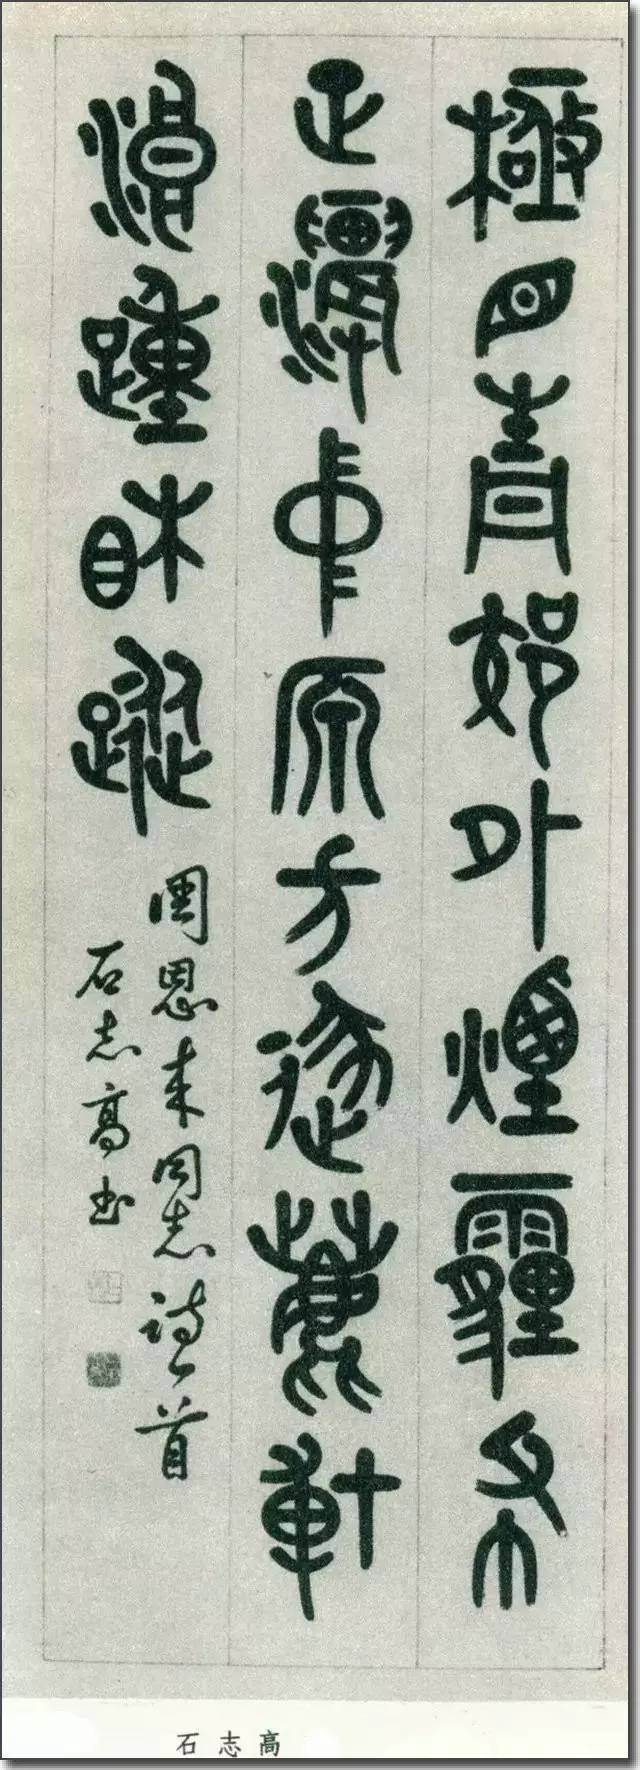 極目青郊外煙霾布
正濃中原方逐鹿博
浪踵相蹤
周恩来同志诗一首
石志高书
石志高